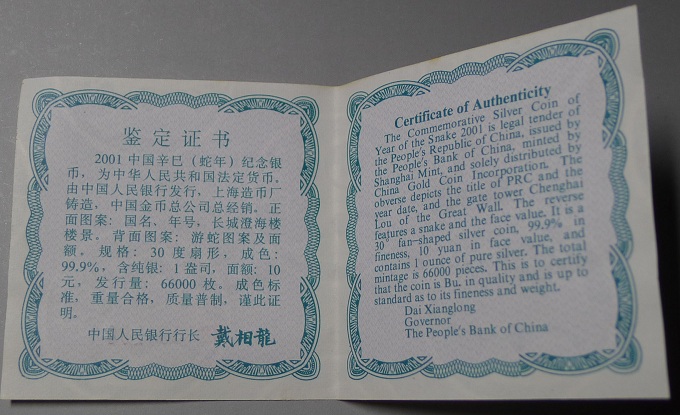 鉴定证书
2001中国辛巳（蛇年）纪念银
币，为中华人民共和国法定货币。
由中国人民银行发行，上海造币厂
铸造，中国金币总公司总经销。正
面图案：国名、年号，长城澄海楼
楼景。背面图案：游蛇图案及面
额。规格：30度扇形，成色：
99.9%，含纯银：1盎司，面额：10
元，发行量：66000枚。成色标
准，重量合格，质量普制，谨此证
明。
中国人民银行行长 戴相龍
Certificate of Authenticity
The Commemorative Silver Coin of
Year of the Snake 2001 is legal tender of
the People's Republic of China, issued by
the People's Bank of China, minted by
Shanghai Mint, and solely distributed by
China Gold Coin Incorporation. The
obverse depicts the title of PRC and the
year date, and the gate tower Chenghai
Lou of the Great Wall. The reverse
features a snake and the face value. It is a
30° fan-shaped silver coin, 99.9% in
fineness, 10 yuan in face value, and
contains 1 ounce of pure silver. The total
mintage is 66000 pieces. This is to certify
that the coin is Bu. in quality and is up to
standard as to its fineness and weight.
Dai Xianglong
Governor
The People's Bank of China